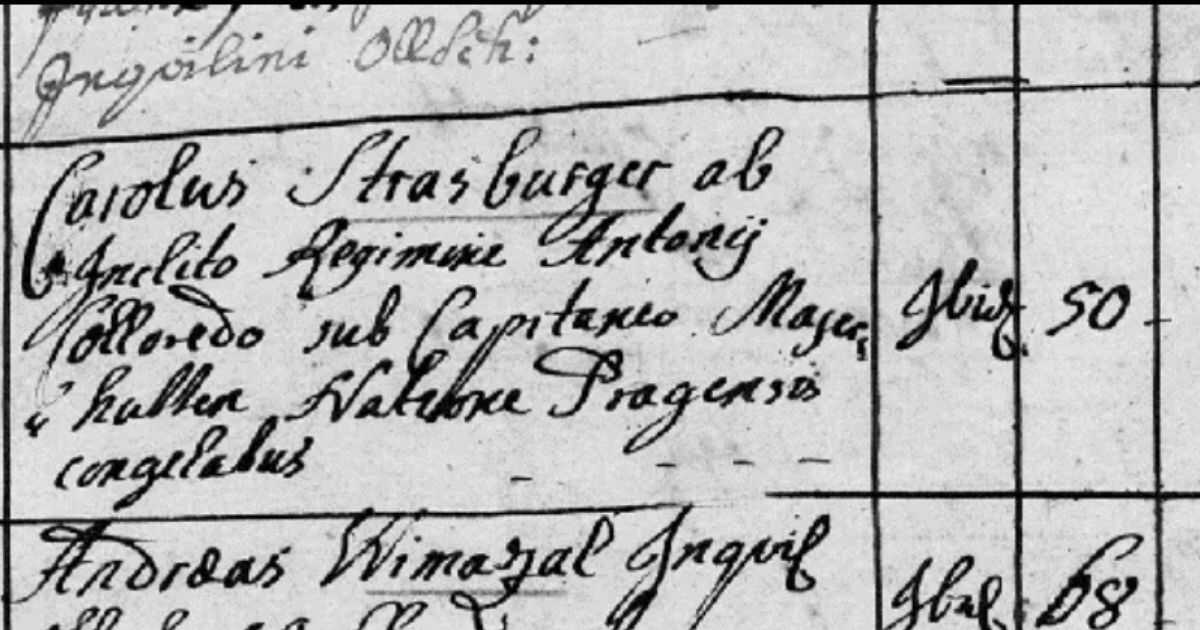 Inqvilini
Carolus Strasburger ab
Inclito Regimine Antonij
Colloredo sub Capitaneo Mager,
hullen Natione Pragensis
congelatus
Ibid 50
Andreas Wimazal Inqvil
68